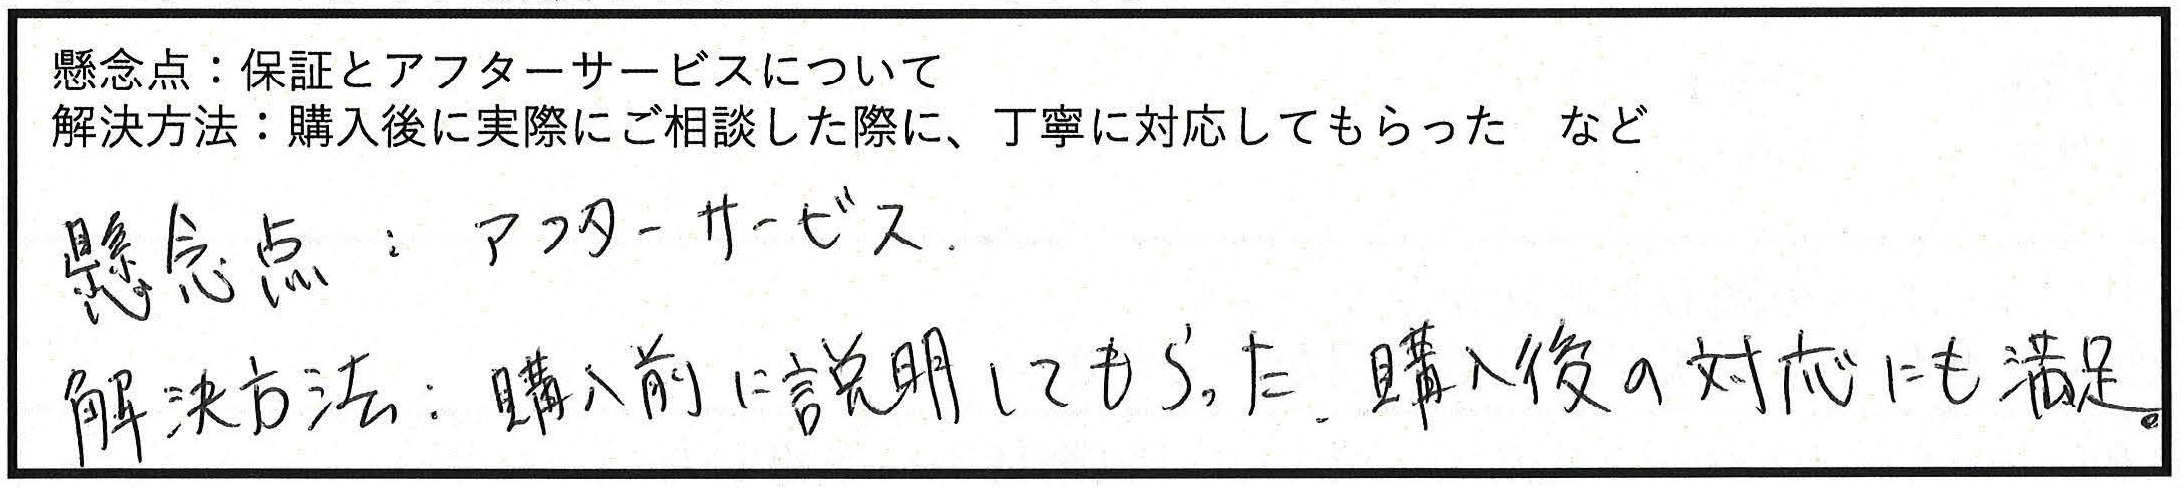 懸念点：保証とアフターサービスについて
解決方法：購入後に実際にご相談した際に、丁寧に対応してもらった　など
懸念点：アフターサービス.
解決方法：購入前に説明してもらった. 購入後の対応にも満足。